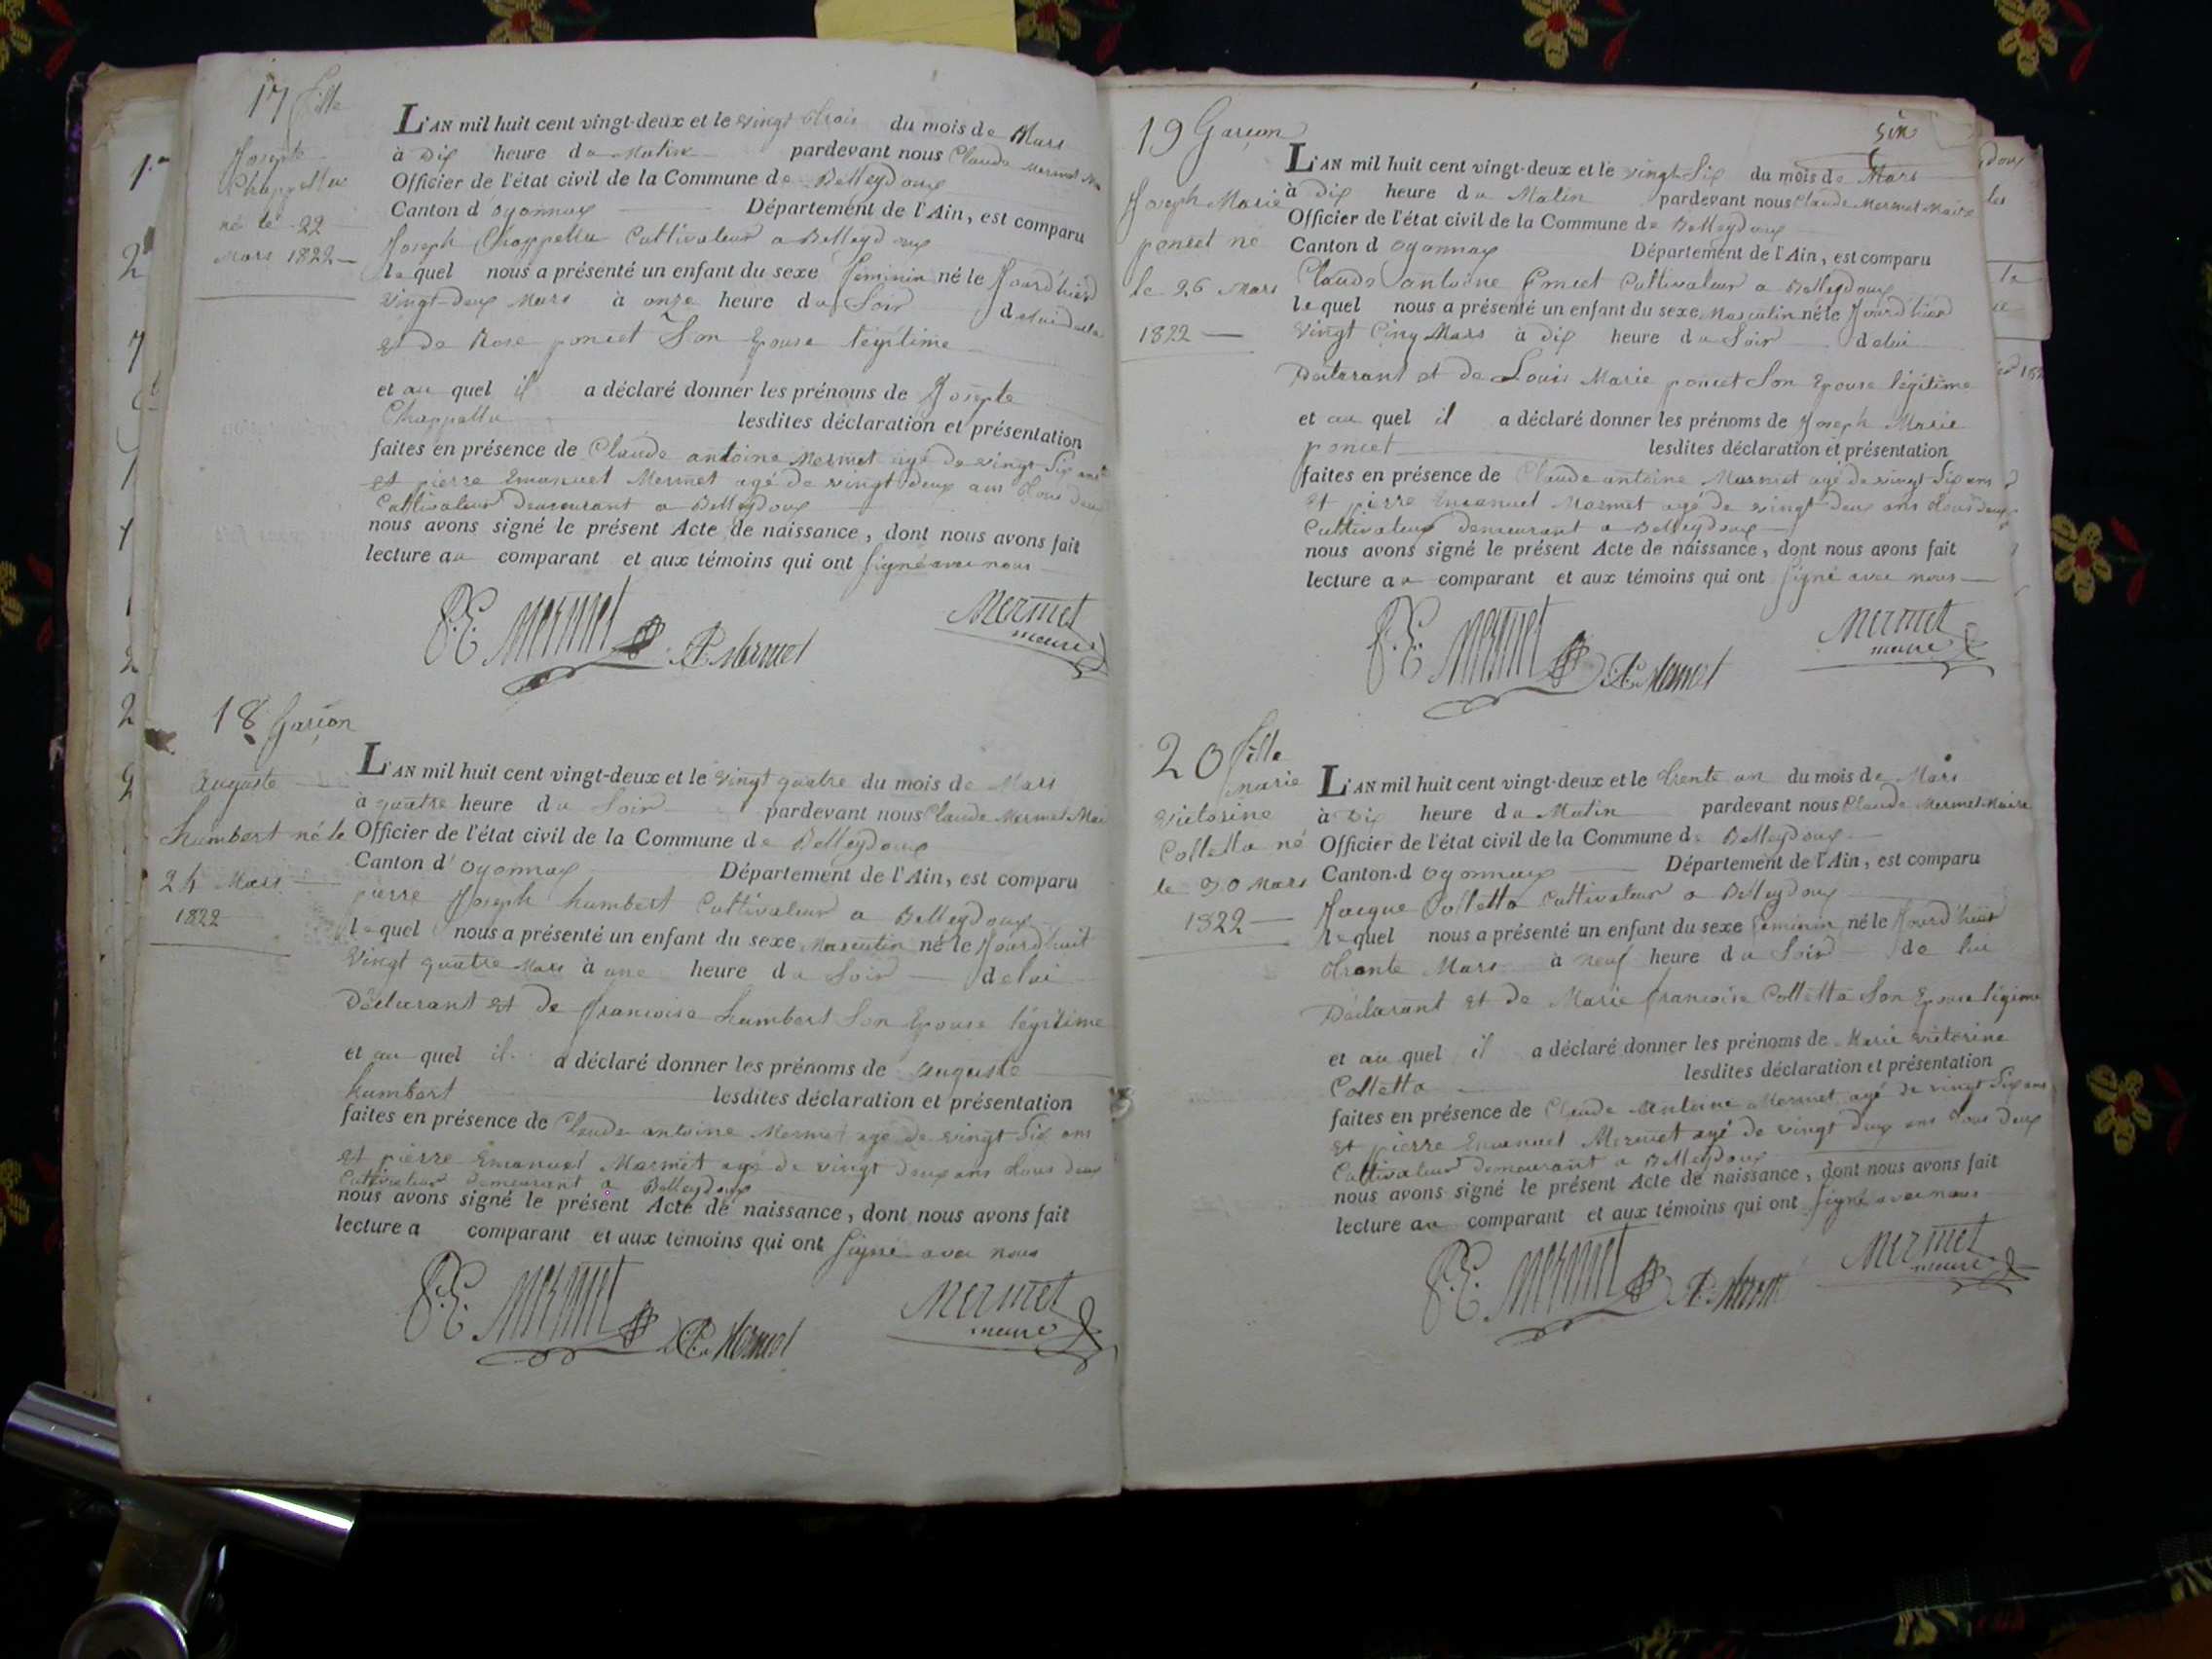 17 fille
Josepte
Chappellu
né le 22
Mars 1822
L'AN mil huit cent vingt-deux et le vingt trois du mois de Mars
à Dix heure du Matin pardevant nous Claude Mermet
Officier de l'état civil de la Commune de Belleydoux
Canton d'oyonnax Département de l'Ain, est comparu
Joseph Chappellu Cultivateur a Belleydoux
lequel nous a présenté un enfant du sexe feminin né le Jourd'hier
vingt-deux Mars à onze heure du Soir de lui
et de Rose poncet Son Epouse légitime
et au quel il a déclaré donner les prénoms de Josepte
Chappellu lesdites déclaration et présentation
faites en présence de Claude antoine Mermet agé de vingt Six ans
et pierre Emanuel Mermet agé de vingt deux ans tous deux
Cultivateur demeurant a Belleydoux
nous avons signé le présent Acte de naissance, dont nous avons fait
lecture au comparant et aux témoins qui ont Signé avec nous
P. E. Mermet Mermet Mermet
maire
18 Garçon
auguste
humbert né le
24 Mars
1822
L'AN mil huit cent vingt-deux et le vingt quatre du mois de Mars
à quatre heure du Soir pardevant nous Claude Mermet
Officier de l'état civil de la Commune de Belleydoux
Canton d'oyonnax Département de l'Ain, est comparu
pierre Joseph humbert Cultivateur a Belleydoux
lequel nous a présenté un enfant du sexe Masculin né le Jourd'huit
vingt quatre Mars à une heure du Soir de lui
Déclarant et de francoise humbert Son Epouse légitime
et au quel il a déclaré donner les prénoms de auguste
humbert lesdites déclaration et présentation
faites en présence de Claude antoine Mermet agé de vingt Six ans
et pierre Emanuel Mermet agé de vingt deux ans tous deux
Cultivateur demeurant a Belleydoux
nous avons signé le présent Acte de naissance, dont nous avons fait
lecture a comparant et aux témoins qui ont Signé avec nous
P. E. Mermet Mermet Mermet
maire
six
19 Garçon
Joseph Marie
poncet né
le 26 Mars
1822
L'AN mil huit cent vingt-deux et le vingt Six du mois de Mars
à Dix heure du Matin pardevant nous Claude Mermet Maire
Officier de l'état civil de la Commune de Belleydoux
Canton d oyonnax Département de l'Ain, est comparu
Claude antoine Poncet Cultivateur a Belleydoux
lequel nous a présenté un enfant du sexe Masculin né le Jourd'hier
vingt Cinq Mars à Dix heure du Soir de lui
Déclarant et de Louis Marie poncet Son Epouse légitime
et au quel il a déclaré donner les prénoms de Joseph Marie
poncet lesdites déclaration et présentation
faites en présence de Claude antoine Mermet agé de vingt Six ans
et pierre Emanuel Mermet agé de vingt deux ans tous deux
Cultivateur demeurant a Belleydoux
nous avons signé le présent Acte de naissance, dont nous avons fait
lecture au comparant et aux témoins qui ont Signé avec nous
P. E. Mermet Mermet Mermet
maire
20 fille
marie
victorine
Colletta né
le 30 Mars
1822
L'AN mil huit cent vingt-deux et le trente un du mois de Mars
à Dix heure du Matin pardevant nous Claude Mermet Maire
Officier de l'état civil de la Commune de Belleydoux
Canton d oyonnax Département de l'Ain, est comparu
Jacque Colletta Cultivateur a Belleydoux
lequel nous a présenté un enfant du sexe feminin né le Jourd'hier
trente Mars à neuf heure du Soir de lui
Déclarant et de Marie francoise Colletta Son Epouse légime
et au quel il a déclaré donner les prénoms de Marie victorine
Colletta lesdites déclaration et présentation
faites en présence de Claude antoine Mermet agé de vingt Six ans
et pierre Emanuel Mermet agé de vingt deux ans tous deux
Cultivateur demeurant a Belleydoux
nous avons signé le présent Acte de naissance, dont nous avons fait
lecture au comparant et aux témoins qui ont Signé avec nous
P. E. Mermet Mermet Mermet
maire